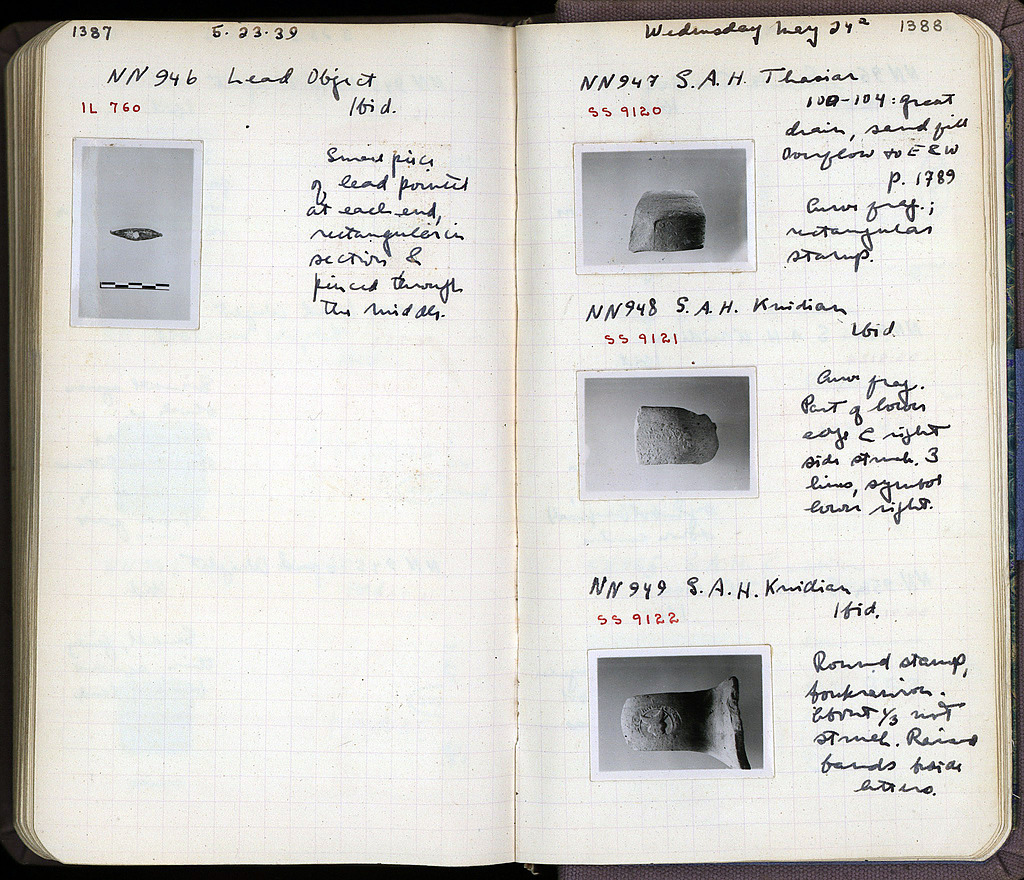 1387
5.23.39
NN 946 Lead Object
IL 760
Ibid.
Small piece
of lead pointed
at each end,
rectangular in
section &
pierced through
the middle.
Wednesday May 24
1388
NN947 S.A.H. Thasian
SS 9120
100-104: great
drain, sand fill
Overflow to E & W
p. 1789
Curve frag.;
rectangular
stamp.
NN948 S.A.H. Knidian
SS 9121
Ibid.
Curve frag.
Part of lower
edge C right
side struck. 3
lines, symbol
lower right.
NN949 S.A.H. Knidian
SS 9122
Ibid.
Round stamp,
About 1/3 not
struck. Raised
bands
letters.